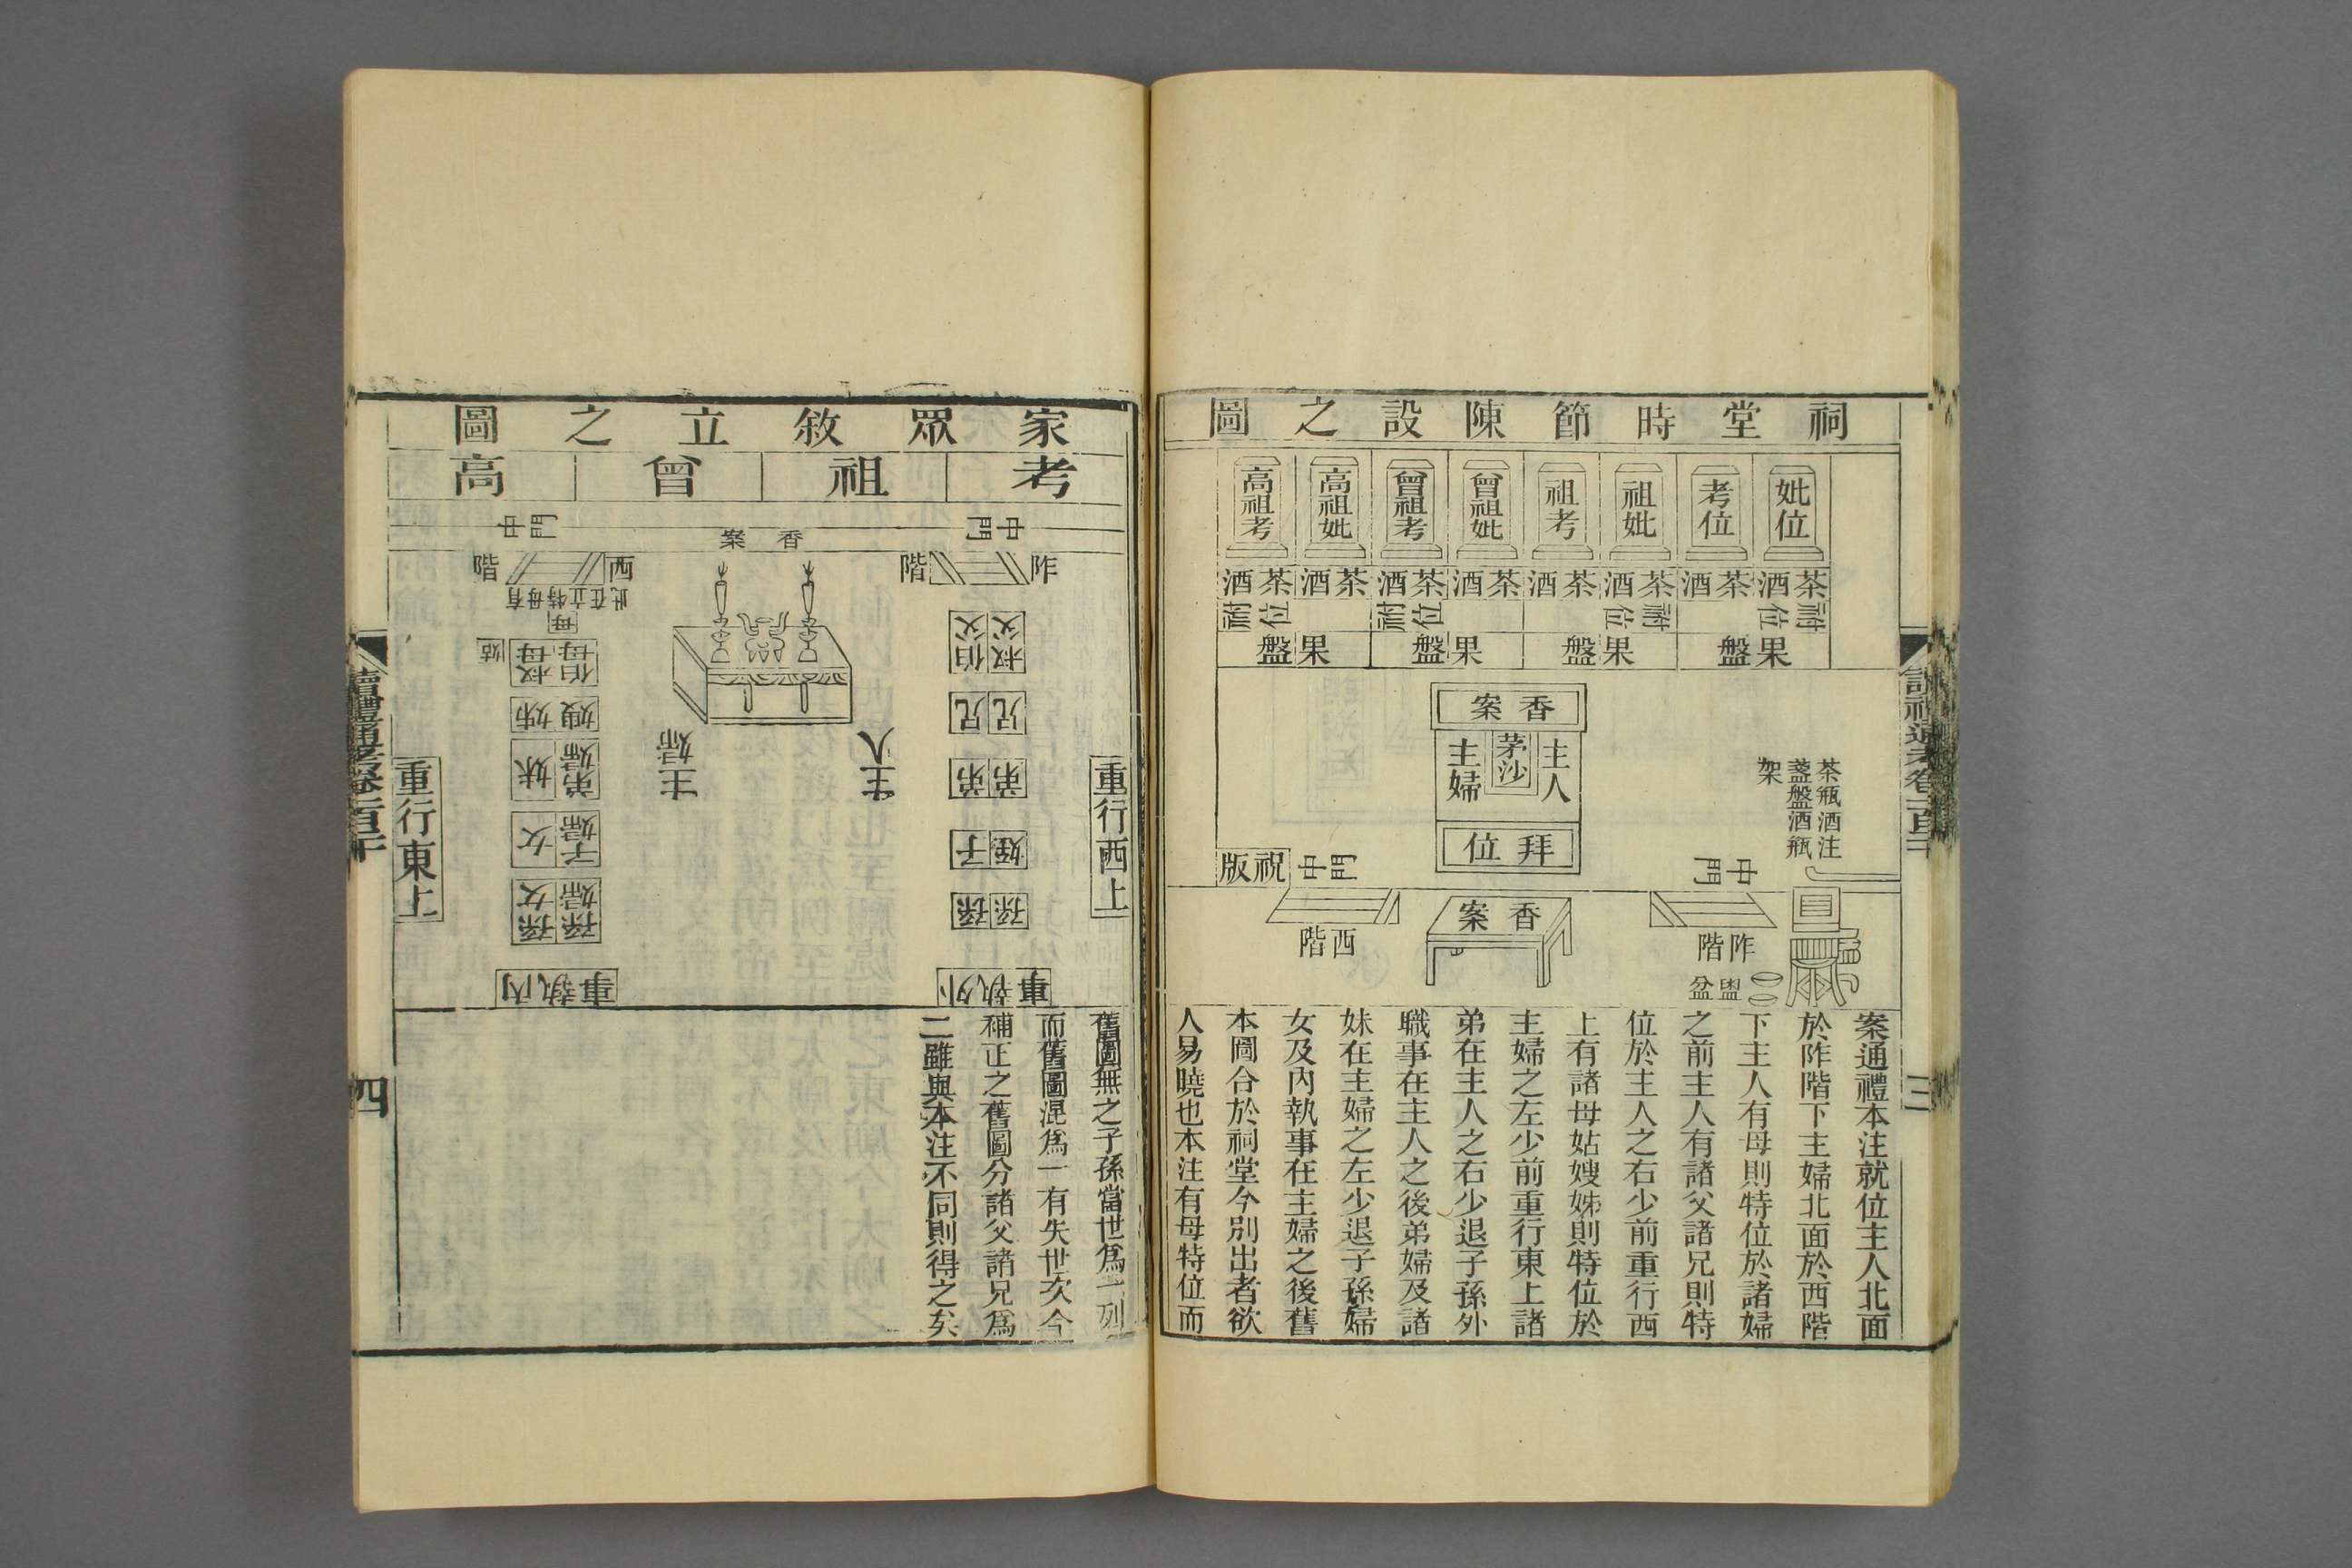 祠堂時節陳設之圖
妣位
考位
祖妣
祖考
曾祖妣
曾祖考
高祖妣
高祖考
茶酒
茶酒
茶酒
茶酒
茶酒
茶酒
茶酒
茶酒
祔位
祔位
祔位
祔位
果盤
果盤
果盤
果盤
香案
主人
茅沙
主婦
拜位
茶瓶酒注
盞盤酒瓶
架
祝版
中門
中門
阼階
香案
西階
盥盆
案通禮本注就位主人北面
於阼階下主婦北面於西階
下主人有母則特位於諸婦
之前主人有諸父諸兄則特
位於主人之右少前重行西
上有諸母姑嫂姊則特位於
主婦之左少前重行東上諸
弟在主人之右少退子孫外
職事在主人之後弟婦及諸
妹在主婦之左少退子孫婦
女及內執事在主婦之後舊
本圖合於祠堂今別出者欲
人易曉也本注有母特位而
三
家眾敘立之圖
考
祖
曾
高
中門
中門
香案
阼階
西階
有母特立在此
母
叔父
伯父
兄
兄
弟
弟
姪
子
孫
孫
外執事
重行西上
主人
主婦
伯母
叔母
姑
嫂
姊
弟婦
妹
子婦
女
孫婦
孫女
內執事
重行東上
舊圖無之子孫當世爲一列
而舊圖混爲一有失世次今
補正之舊圖分諸父諸兄爲
二雖與本注不同則得之矣
讀禮通考卷一百二十
四